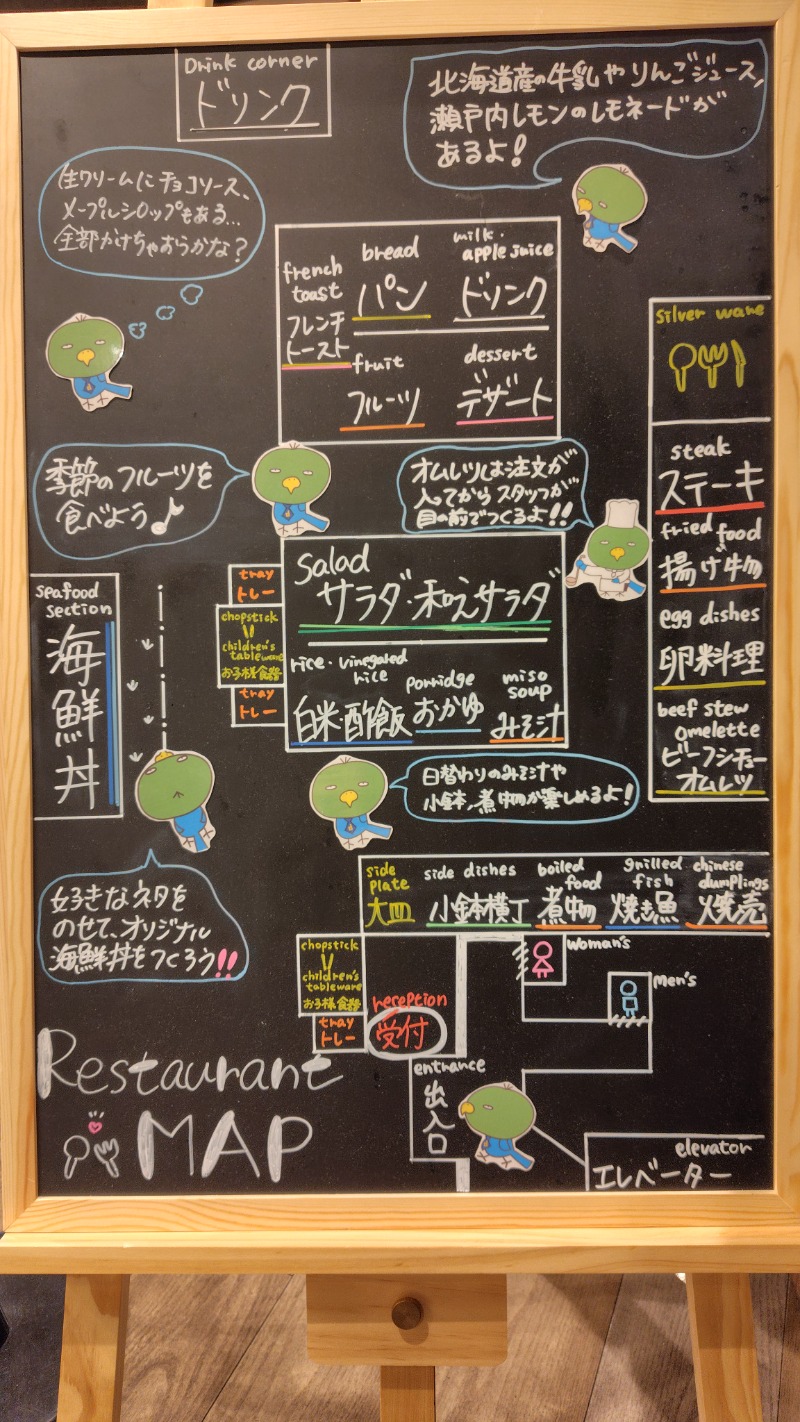 Drink corner
ドリンク
北海道産の牛乳やりんごジュース、
瀬戸内レモンのレモネードが
あるよ!
生クリームにチョコソース、
メープルシロップもある...
全部かけちゃおらかな?
french
toast
フレンチ
トースト
bread
パン
milk・
apple juice
ドリンク
fruit
フルーツ
dessert
デザート
silver ware
季節のフルーツを
食べよう♪
オムレツは注文が
入ってからスタッフが
目の前でつくるよ!!
steak
ステーキ
fried food
揚げ物
egg dishes
卵料理
beef stew
omelette
ビーフシチュー
オムレツ
seafood
section
海鮮丼
tray
トレー
chopstick
children's
tableware
お子様食器
tray
トレー
Salad
サラダ・和えサラダ
rice・vinegared
rice
白米・酢飯
porridge
おかゆ
miso
soup
みそ汁
日替わりのみそ汁や
小鉢、煮物が楽しめるよ!
好きなネタを
のせて、オリジナル
海鮮丼をつくろう!!
side
plate
大皿
side dishes
小鉢横丁
boiled
food
煮物
grilled
fish
焼き魚
chinese
dumplings
焼売
chopstick
children's
tableware
お子様食器
tray
トレー
reception
受付
woman's
men's
entrance
出入口
elevator
エレベーター
Restaurant
MAP